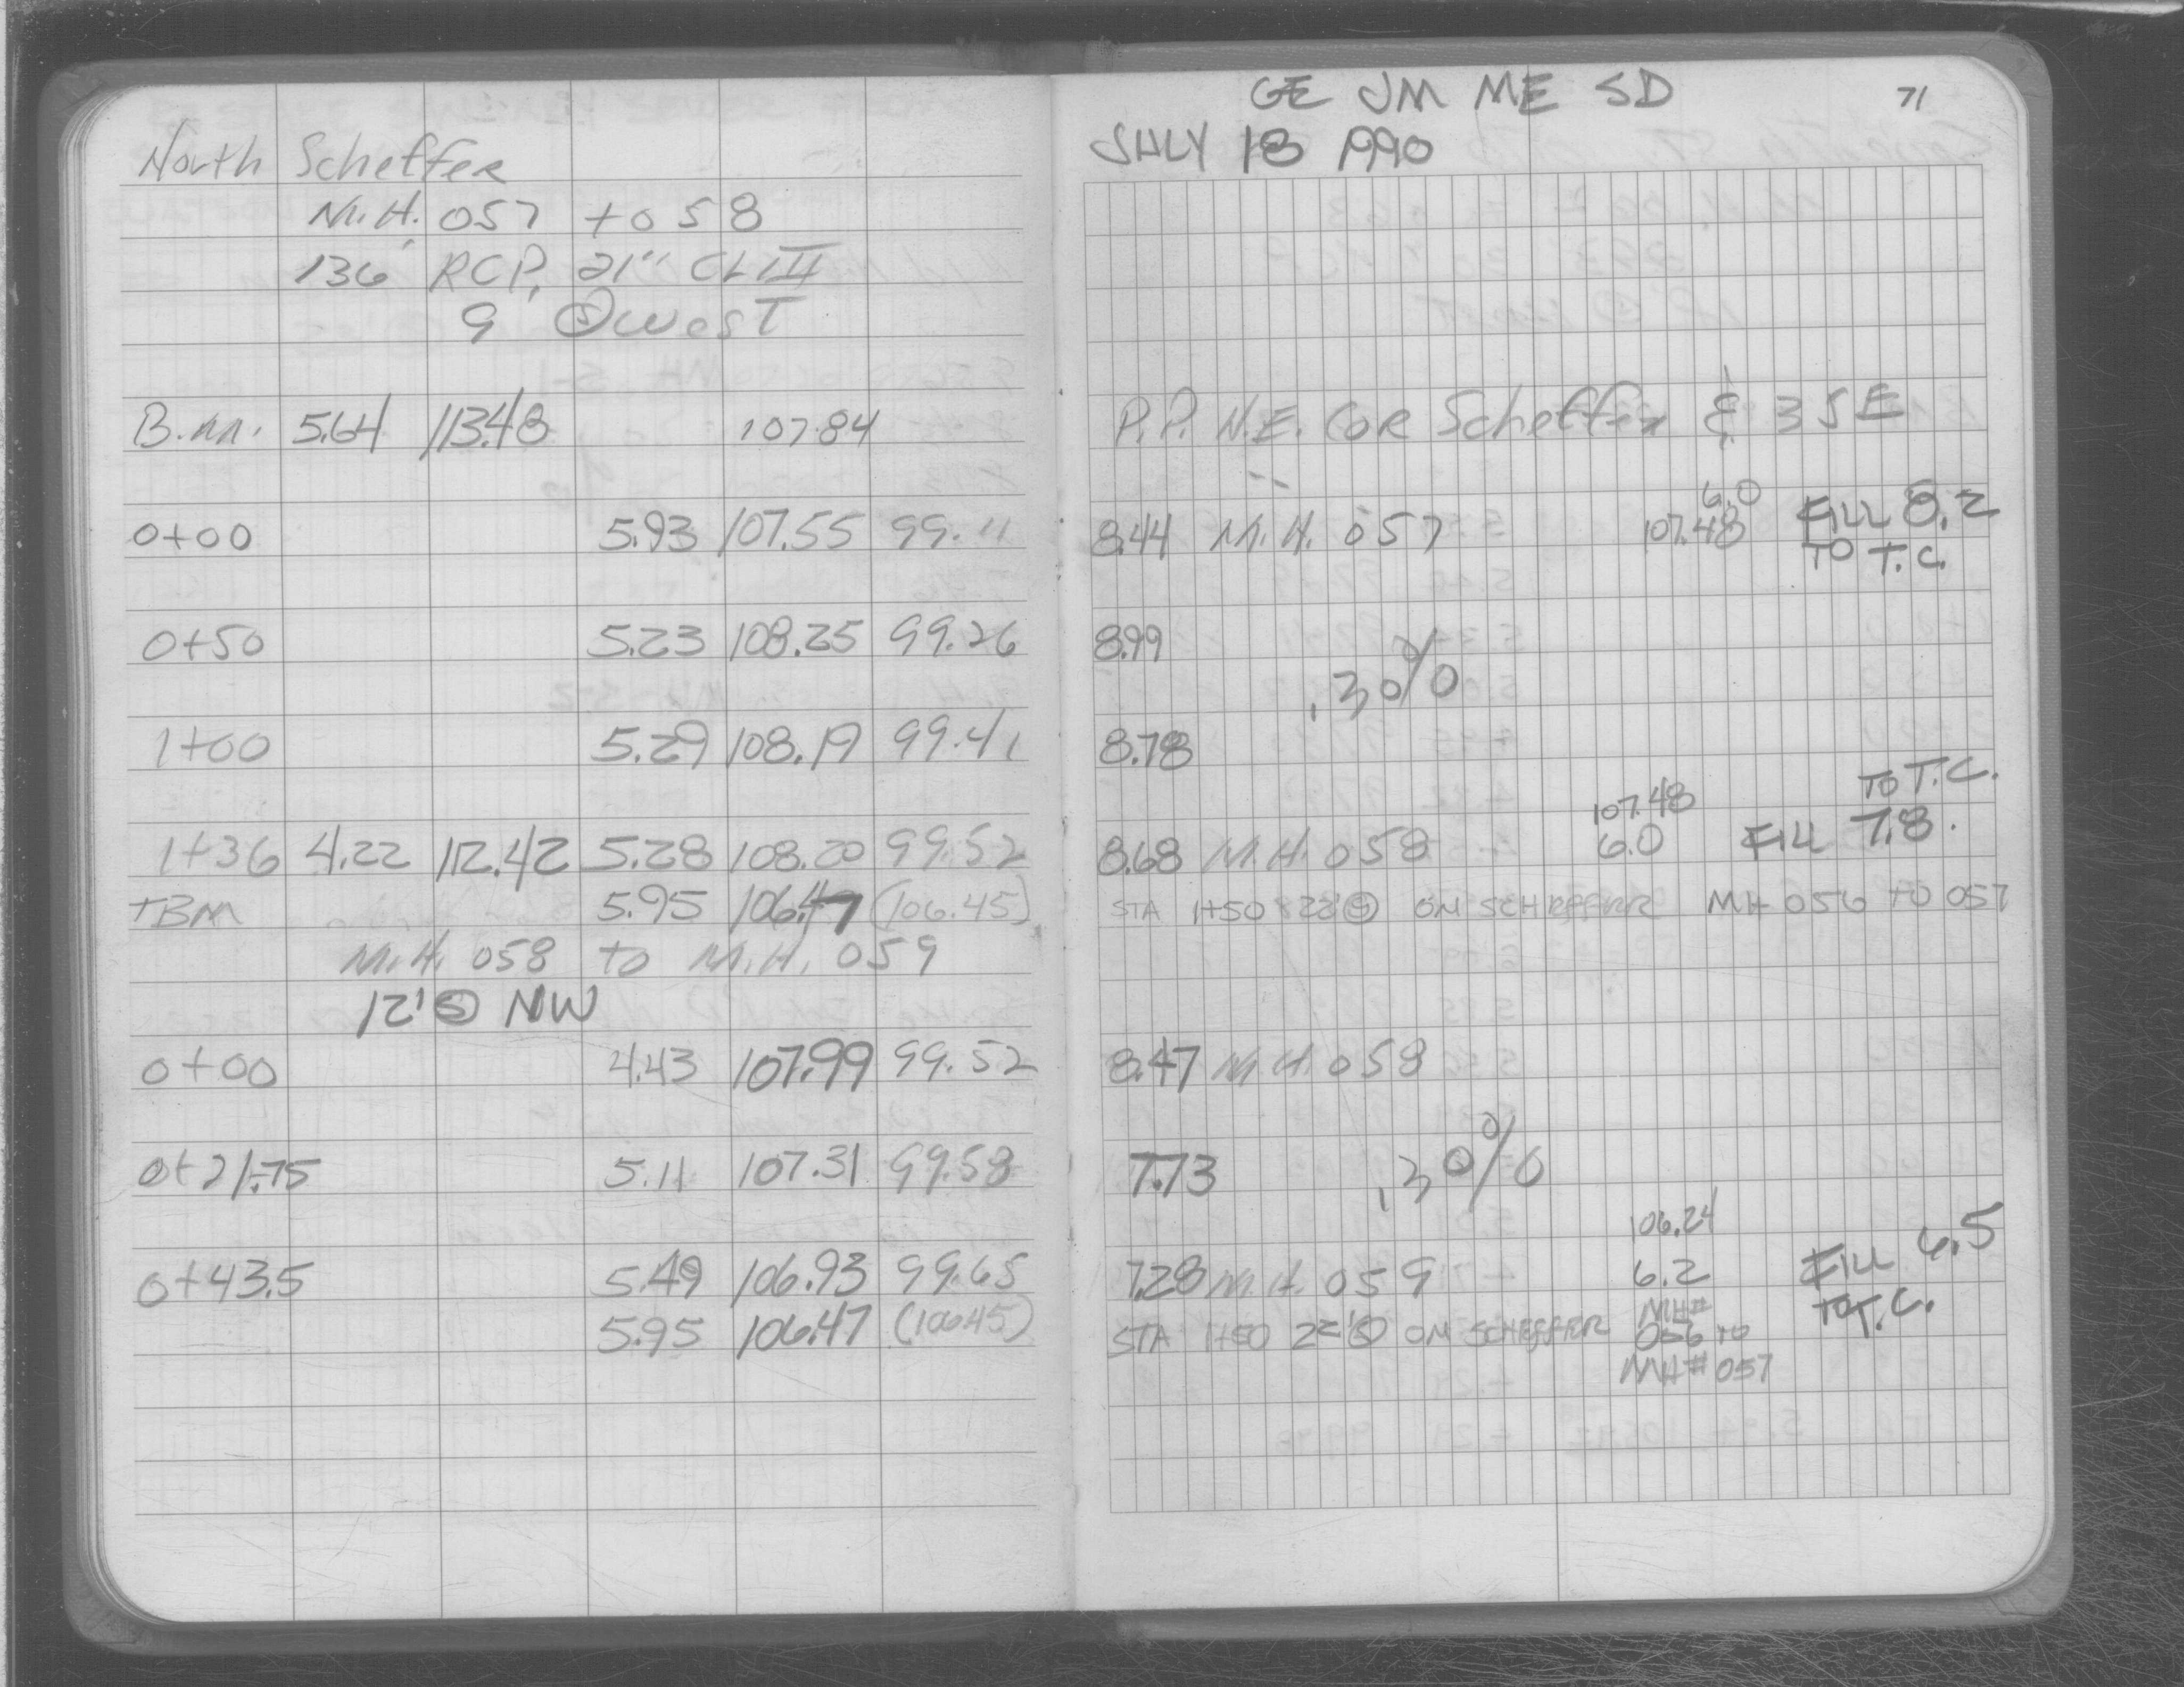 North Scheffer
M.H. 057 to 58
136' RCP, 21" CL III
9 Ⓢ West
B.M. 5.64 113.48 107.84
0+00 5.93 107.55 99.11
0+50 5.23 108.25 99.26
1+00 5.29 108.19 99.41
1+36 4.22 112.42 5.28 108.20 99.52
TBM 5.95 106.47 (106.45)
M.H. 058 to M.H. 059
12' Ⓢ NW
0+00 4.43 107.99 99.52
0+21.75 5.11 107.31 99.58
0+43.5 5.49 106.93 99.65
5.95 106.47 (106.45)
GE JM ME SD 71
JULY 18 1990
P.P. N.E. COR Scheffer & 3 SE
6.0
8.44 M.H. 057 107.48 FILL 8.2
TO T.C.
8.99
.30%
8.78
TO T.C.
107.48
8.68 M.H. 058 6.0 FILL 7.8
STA 1+50 22'Ⓢ ON SCHEFFER MH 056 TO 057
8.47 M.H. 058
7.73 .30%
106.24
7.28 M.H. 059 6.2 FILL 6.5
TO T.C.
STA 1+50 22'Ⓢ ON SCHEFFER MH#
056 TO
MH# 057